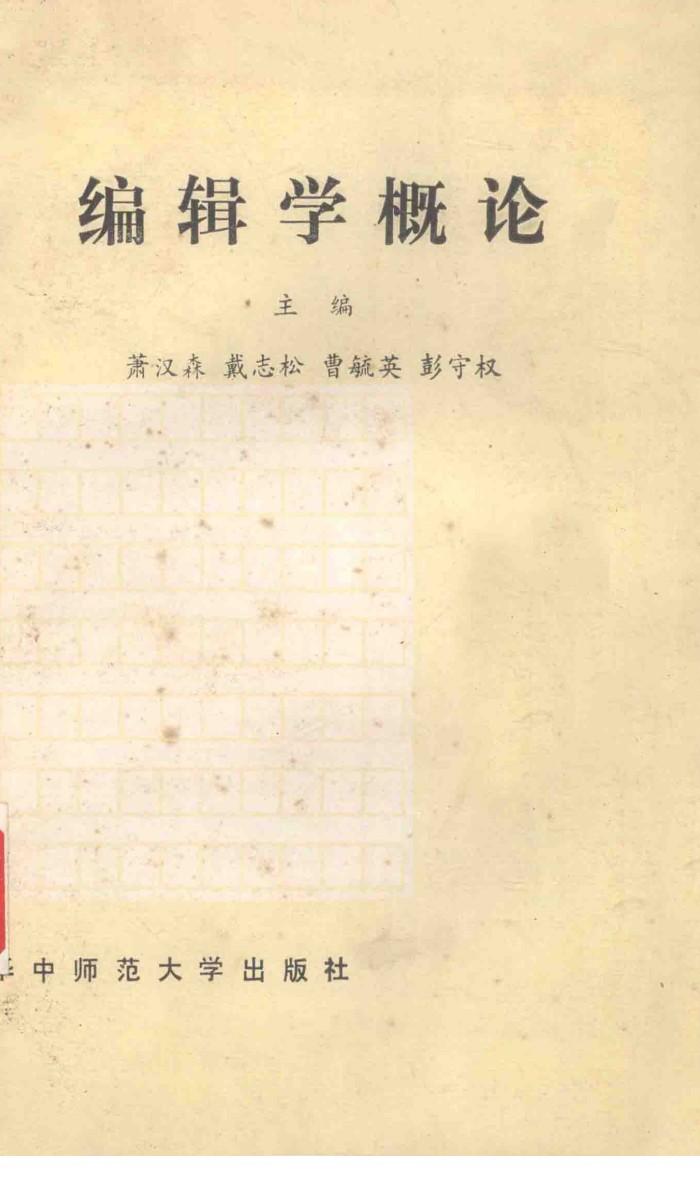 编辑学概论
主编
萧汉森 戴志松 曹毓英 彭守权
华中师范大学出版社